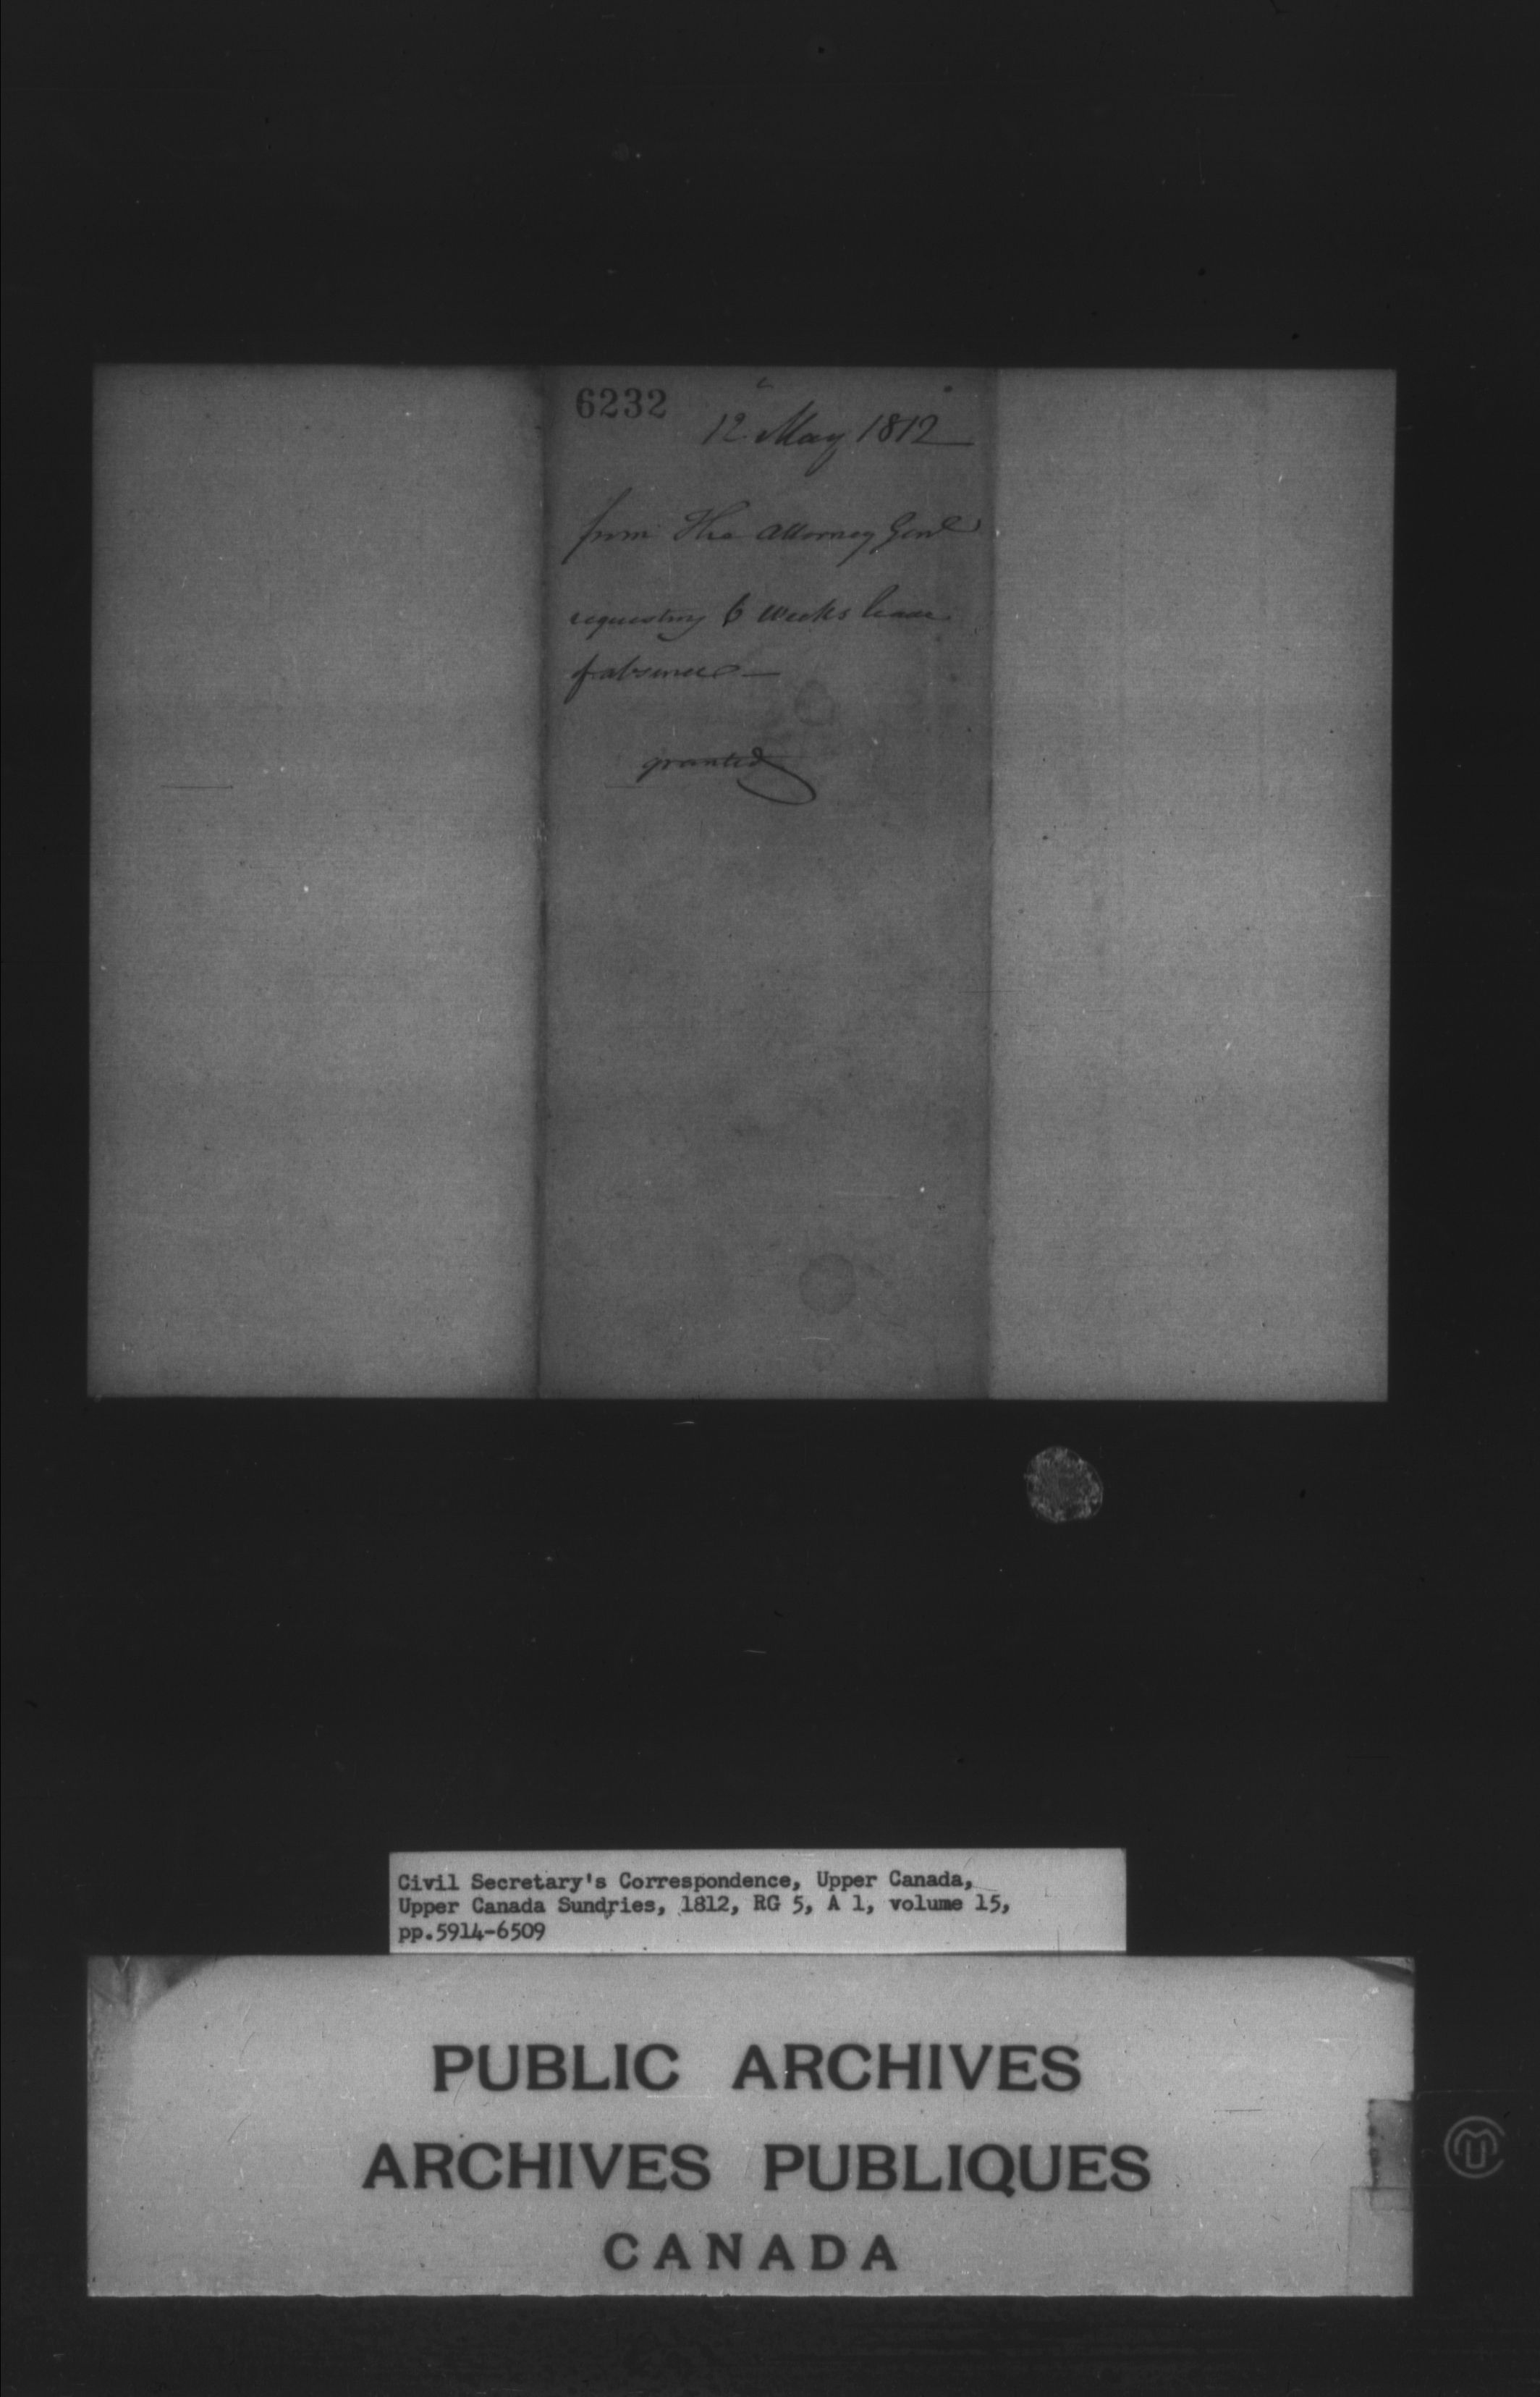 6232
12 May 1812
from The Attorney Genl
requesting 6 weeks leave
of absence —
granted
Civil Secretary's Correspondence, Upper Canada,
Upper Canada Sundries, 1812, RG 5, A 1, volume 15,
pp.5914-6509
PUBLIC ARCHIVES
ARCHIVES PUBLIQUES
CANADA